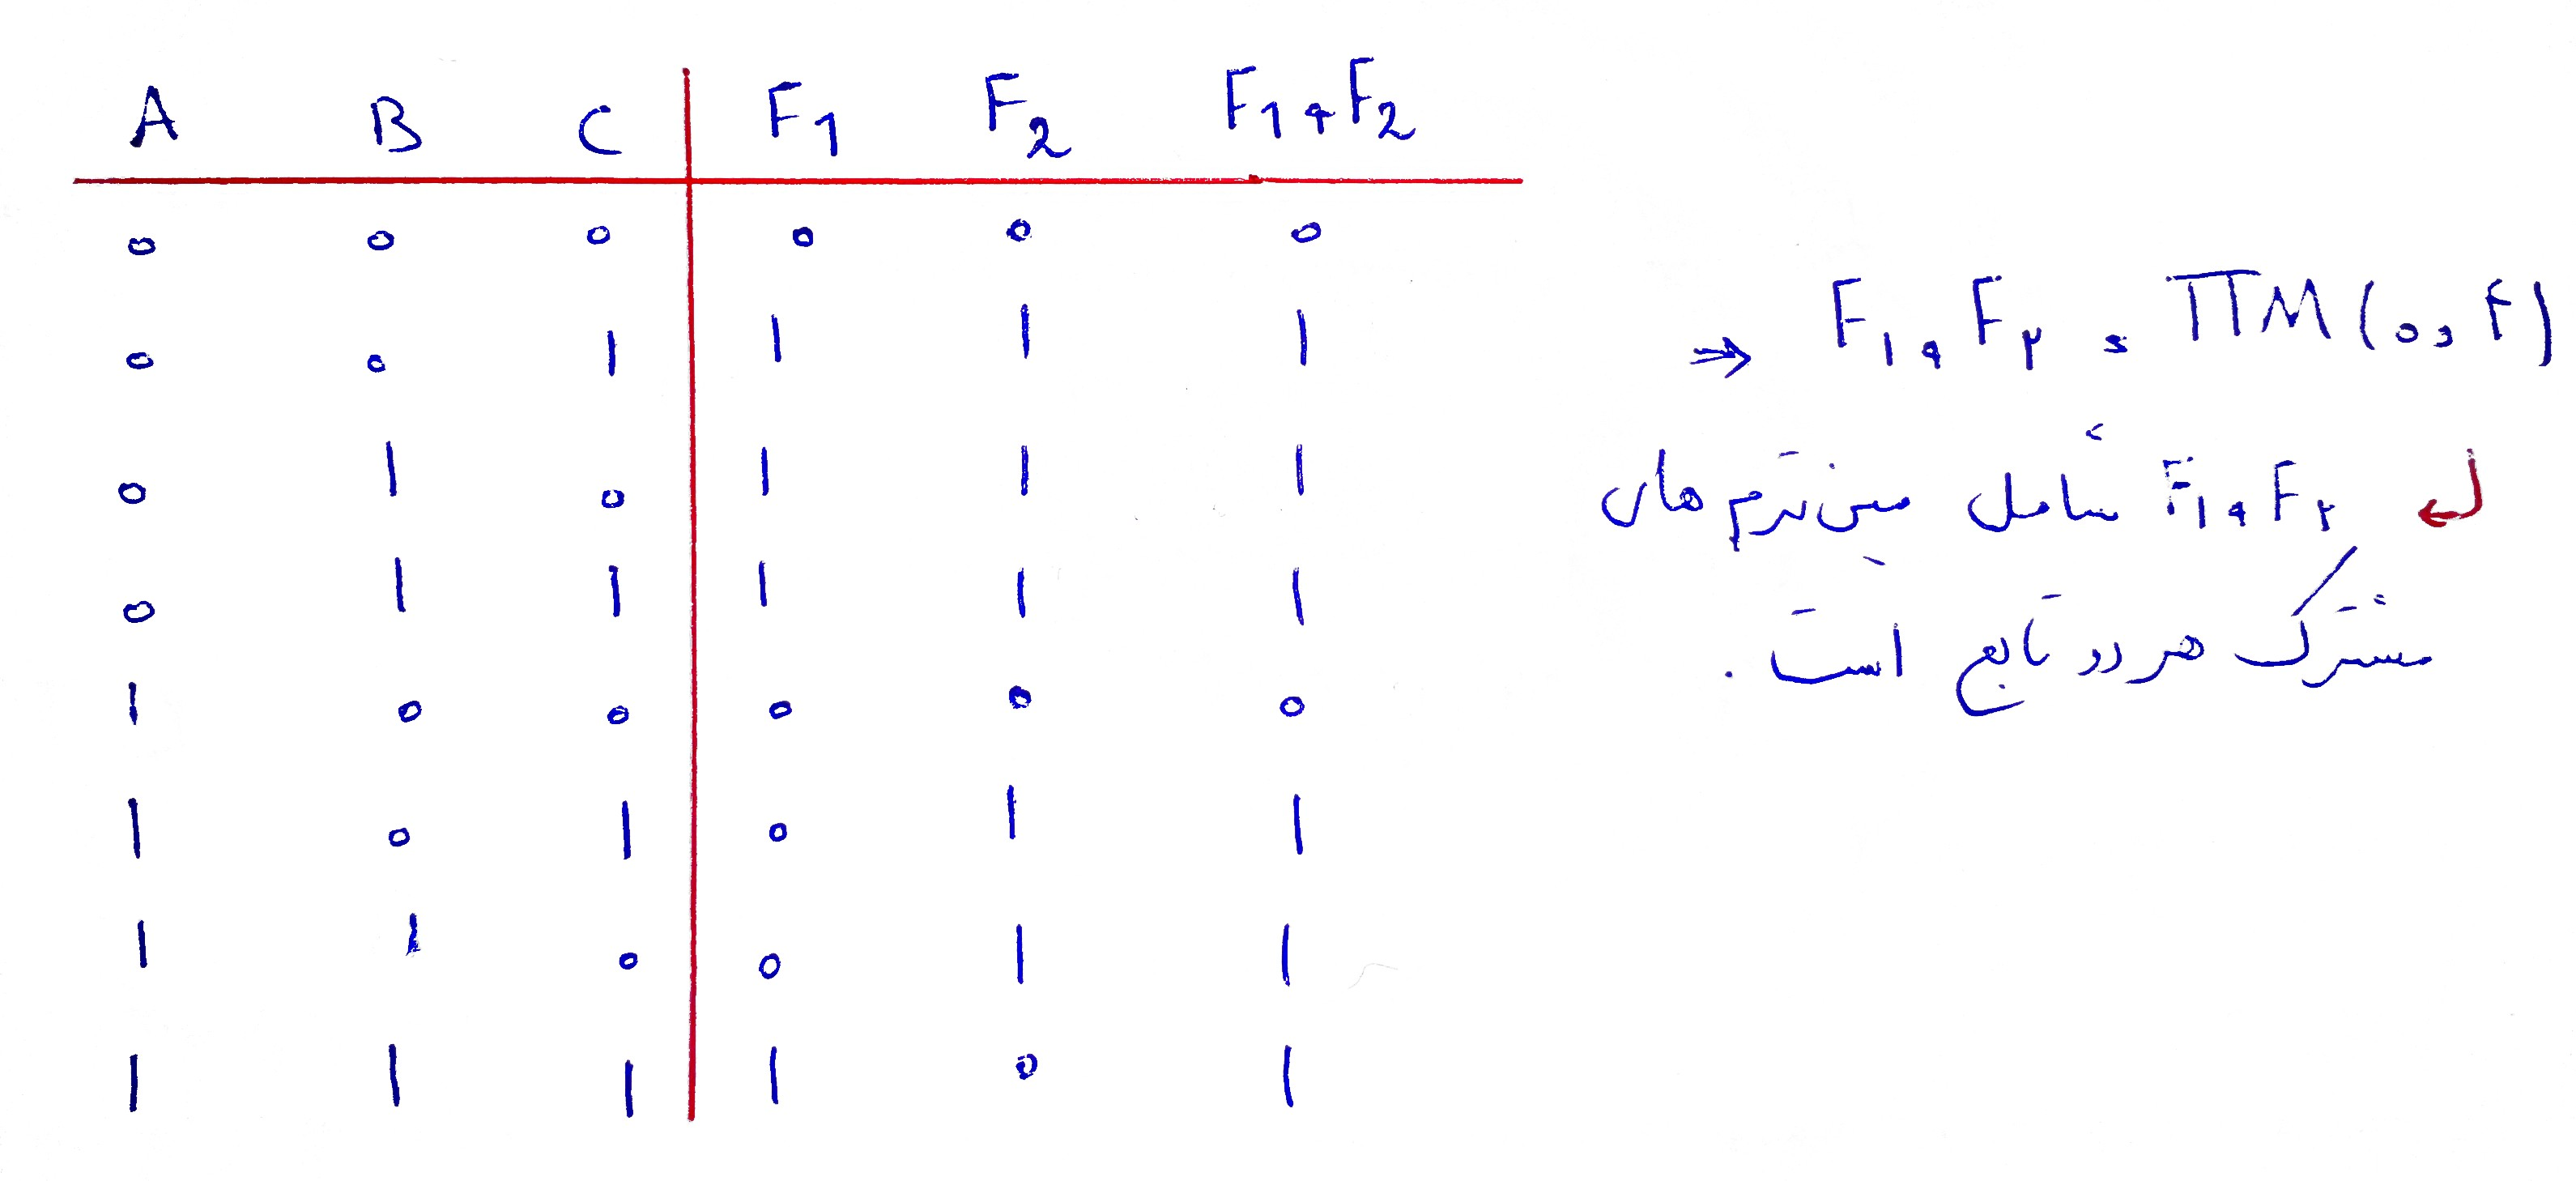 A B C F1 F2 F1+F2
0 0 0 0 0 0
0 0 1 1 1 1
0 1 0 1 1 1
0 1 1 1 1 1
1 0 0 0 0 0
1 0 1 0 1 1
1 1 0 0 1 1
1 1 1 1 0 1
⇒ F۱+F۲ = ΠM(۰ و ۴)
F۱+F۲ شامل مین‌ترم های
مشترک هر دو تابع است .